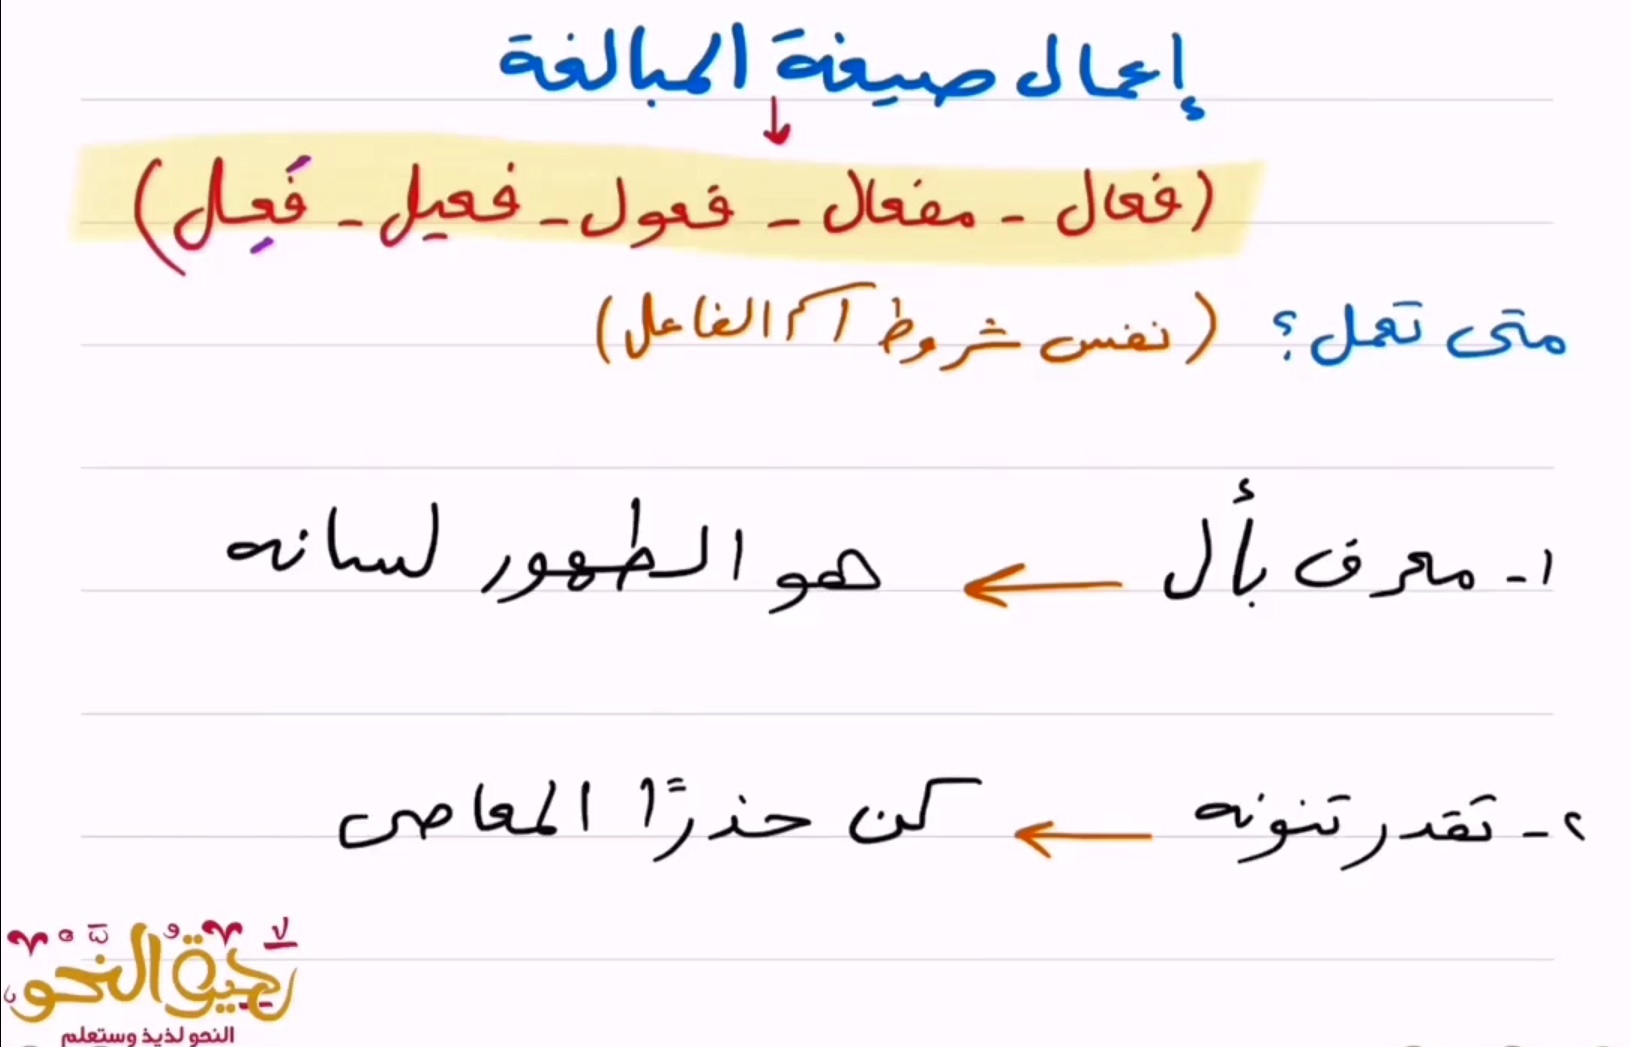 إعمال صيغة المبالغة
(فعال - مفعال - فعول - فعيل - فَعِل)
متى تعمل؟ (نفس شروط اسم الفاعل)
١- معرف بأل ← هو الطهور لسانه
٢- تقدر تنونه ← كن حذرًا المعاصى
رحيق النحو
النحو لذيذ وستعلم